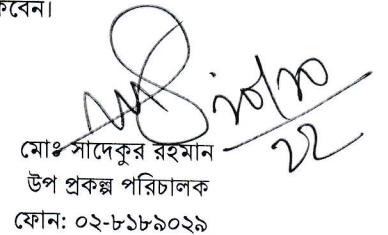 কবেন।
মোঃ সাদেকুর রহমান
উপ প্রকল্প পরিচালক
ফোন: ০২-৮১৮৯০২৯